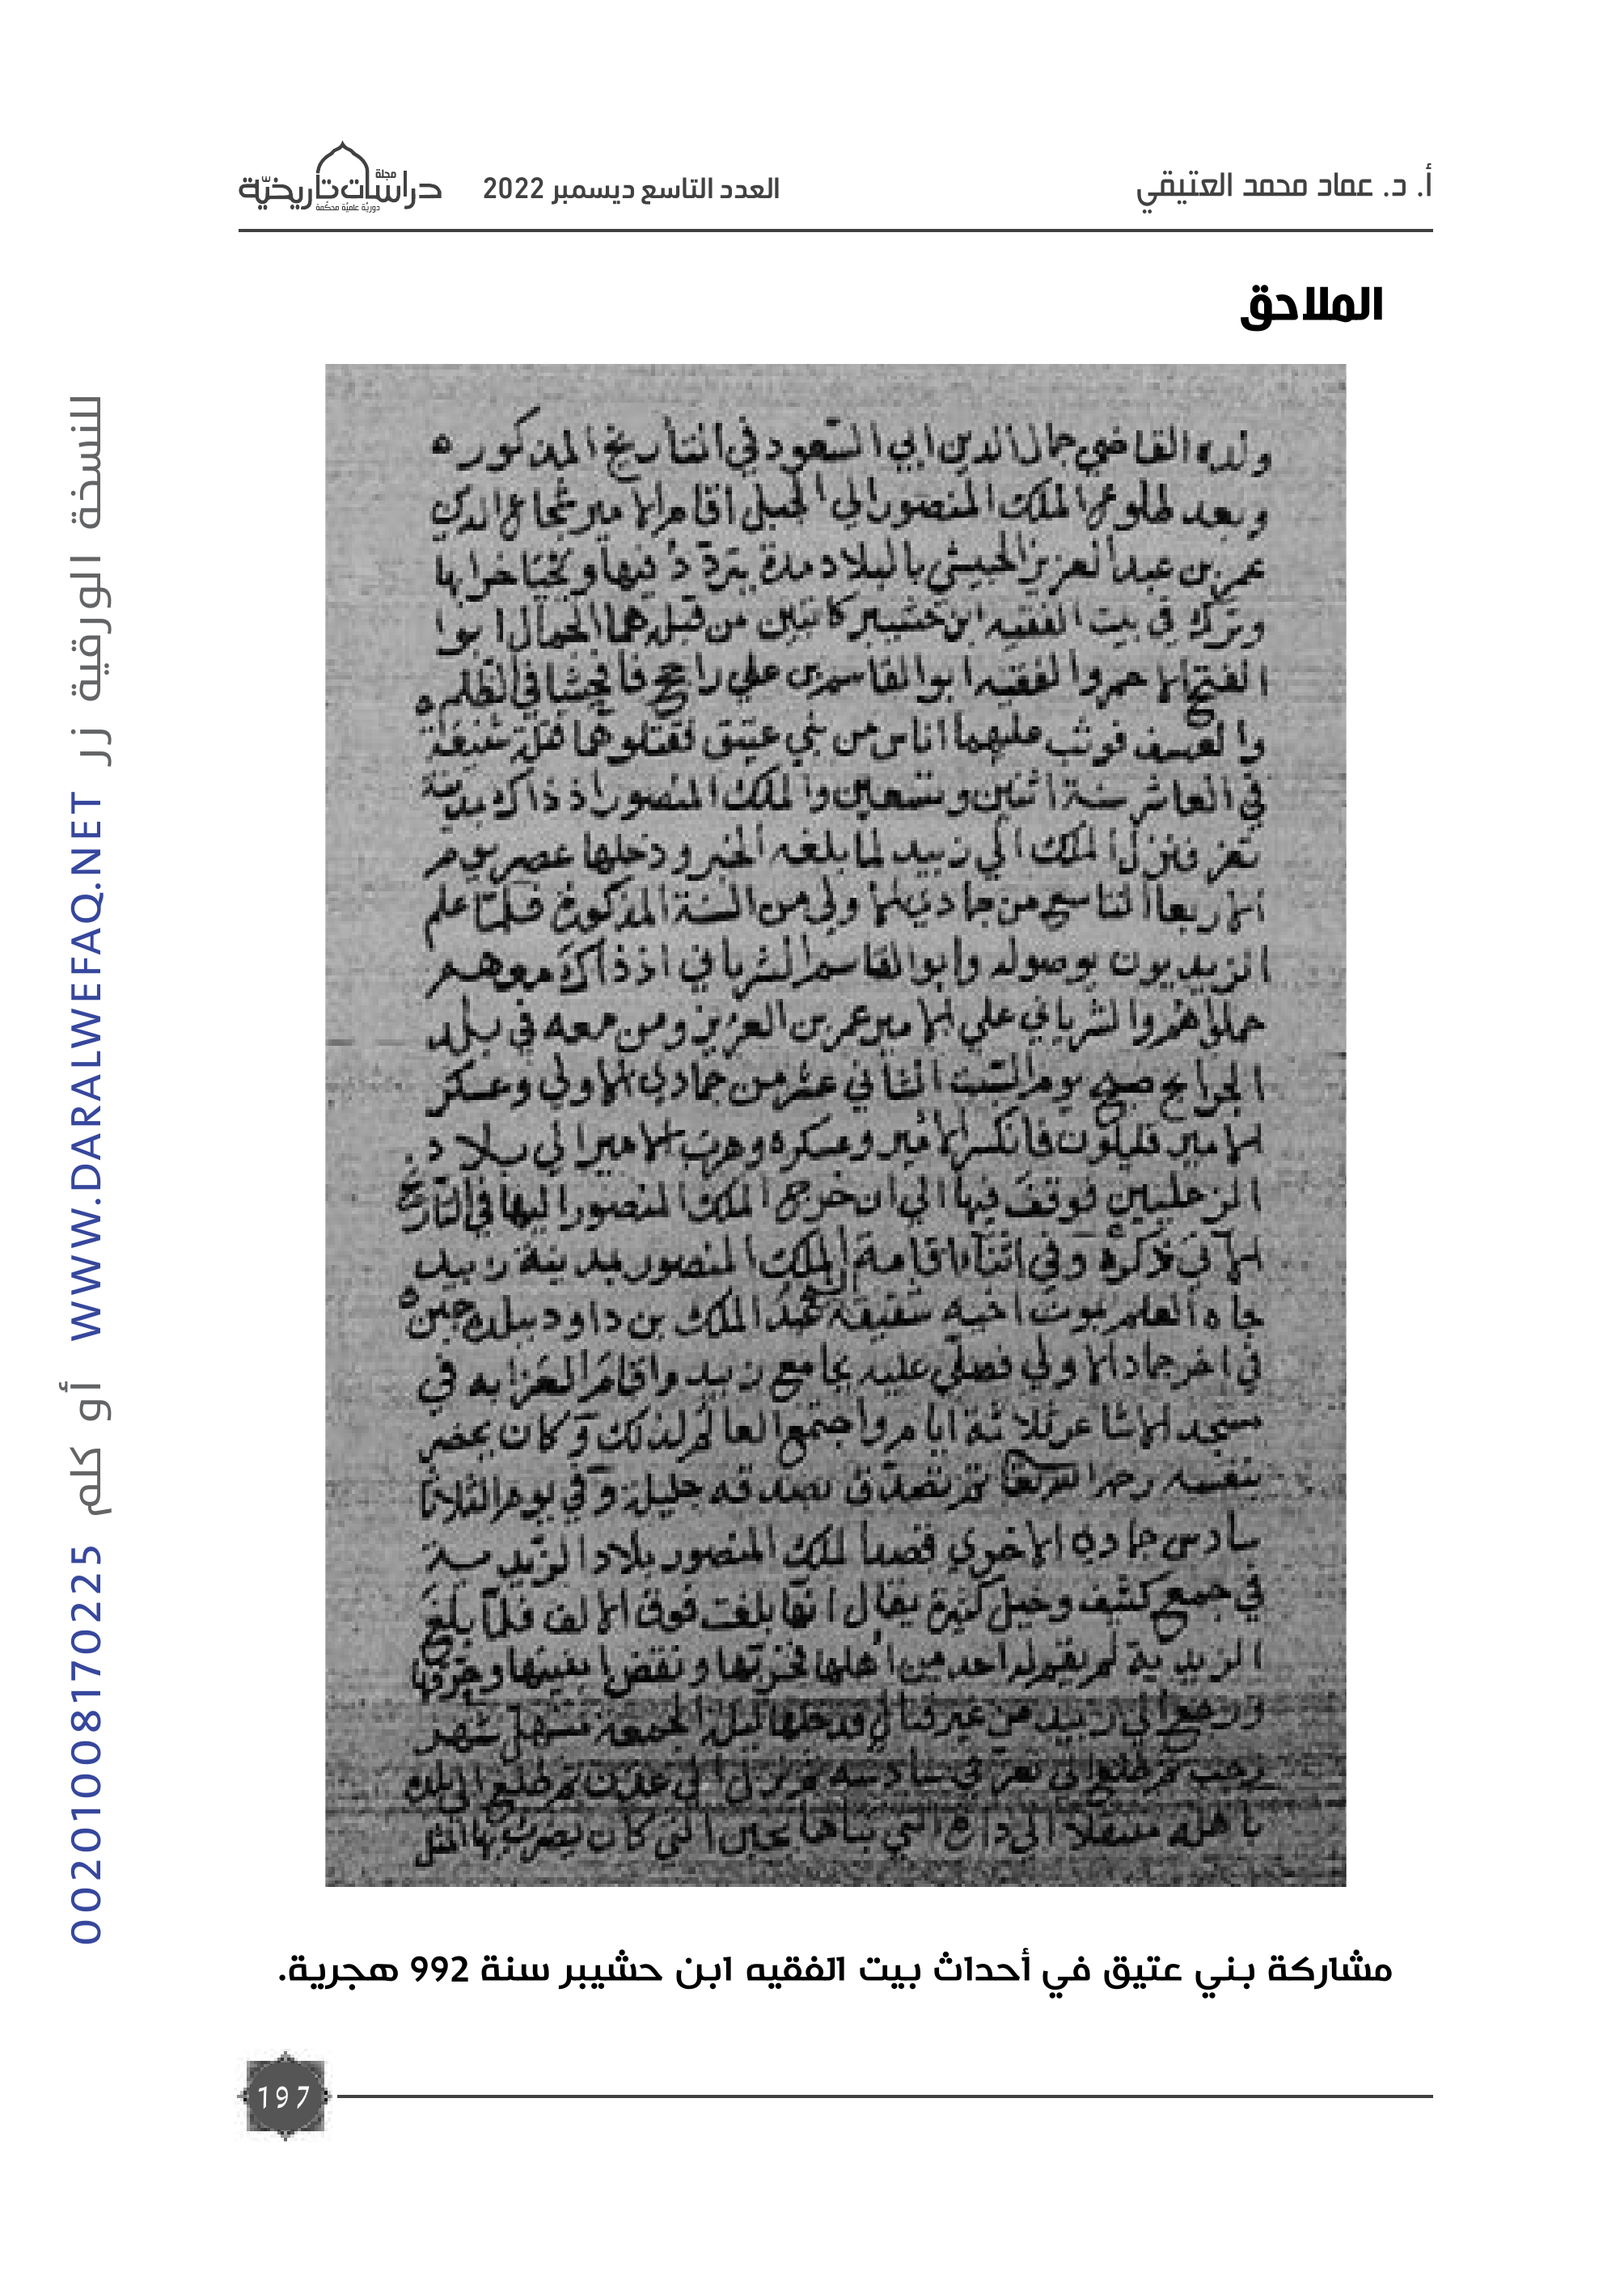 أ. د. عماد محمد العتيقي
العدد التاسع ديسمبر 2022
مجلة
دراسات تاريخيّة
دوريّة علميّة محكّمة
الملاحق
ولده القاضي جمال الدين ابي السّعود في التأريخ المذكور ه
وبعد طلوع الملك المنصور الي الجبل اقام الامير شجاع الدين
عمر بن عبد العزيز الحبيشي بالبلاد مدة
وترك في بيت الفقيه ابن حشيبر كاتبين من قبله هما الجمال ابوا
الفتح الاحمر والفقيه ابو القاسم بن علي راجح فافحشا في الظلم ه
والعسف فوثب عليهما اناس من بني عتيق فقتلوهما قتلة شنيعة
في العاشر سنة اثنين وتسعين والملك المنصور اذ ذاك بمدينة
تعز فنزل الملك الي زبيد لما بلغه الخبر ودخلها عصر يوم
الاربعا التاسع من جمادي الاولي من السنة المذكورة فلمّا علم
الزيديون بوصوله وابو القاسم الشرياني اذ ذاك معهم
حملوا هم والشرياني علي الامير عمر بن العزيز ومن معه في بلد
الجرابح صبح يوم السّبت الثاني عشر من جمادي الاولي وعسكر
الامير قليلون فانكسر الامير وعسكره وهرب الامير الي بلاد
الزعليين فوقف فيها الي ان خرج الملك المنصور اليها في التأريخ
الآتي ذكره وفي اثنآء اقامة الملك المنصور بمدينة زبيد
جاه العلم بموت اخيه شقيقه الشيخ عبد الملك بن داود ببلده جبن ه
في اخر جماد الاولي فصلّي عليه بجامع زبيد واقام العزا به في
مسجد الاشاعر ثلاثة ايام واجتمع العالم لذلك وكان يحضر
بنفسه ثم تصدّق بصدقه جليلة وفي يوم الثلاثا
سادس جماده الاخري قصد الملك المنصور بلاد الزيدية
في جمع كثيف وخيل كثيرة يقال انّها بلغت فوق الالف فلمّا بلغ
الزيدية لم يقوله احد من اهلها فخربّها ونقض ابنيتها وحرّقها
ورجع الي زبيد من غير قتال ودخلها ليلة الجمعة مستهل شهر
رجب ثم طلع الي تعز في سادسه ثم نزل الي عدن ثم طلع الي بلده
باهله منتقلا الى داره التي بناها بجبن التي كان يضرب بها المثل
مشاركة بني عتيق في أحداث بيت الفقيه ابن حشيبر سنة 992 هجرية.
197
للنسخة الورقية زر WWW.DARALWEFAQ.NET أو كلم 00201008170225